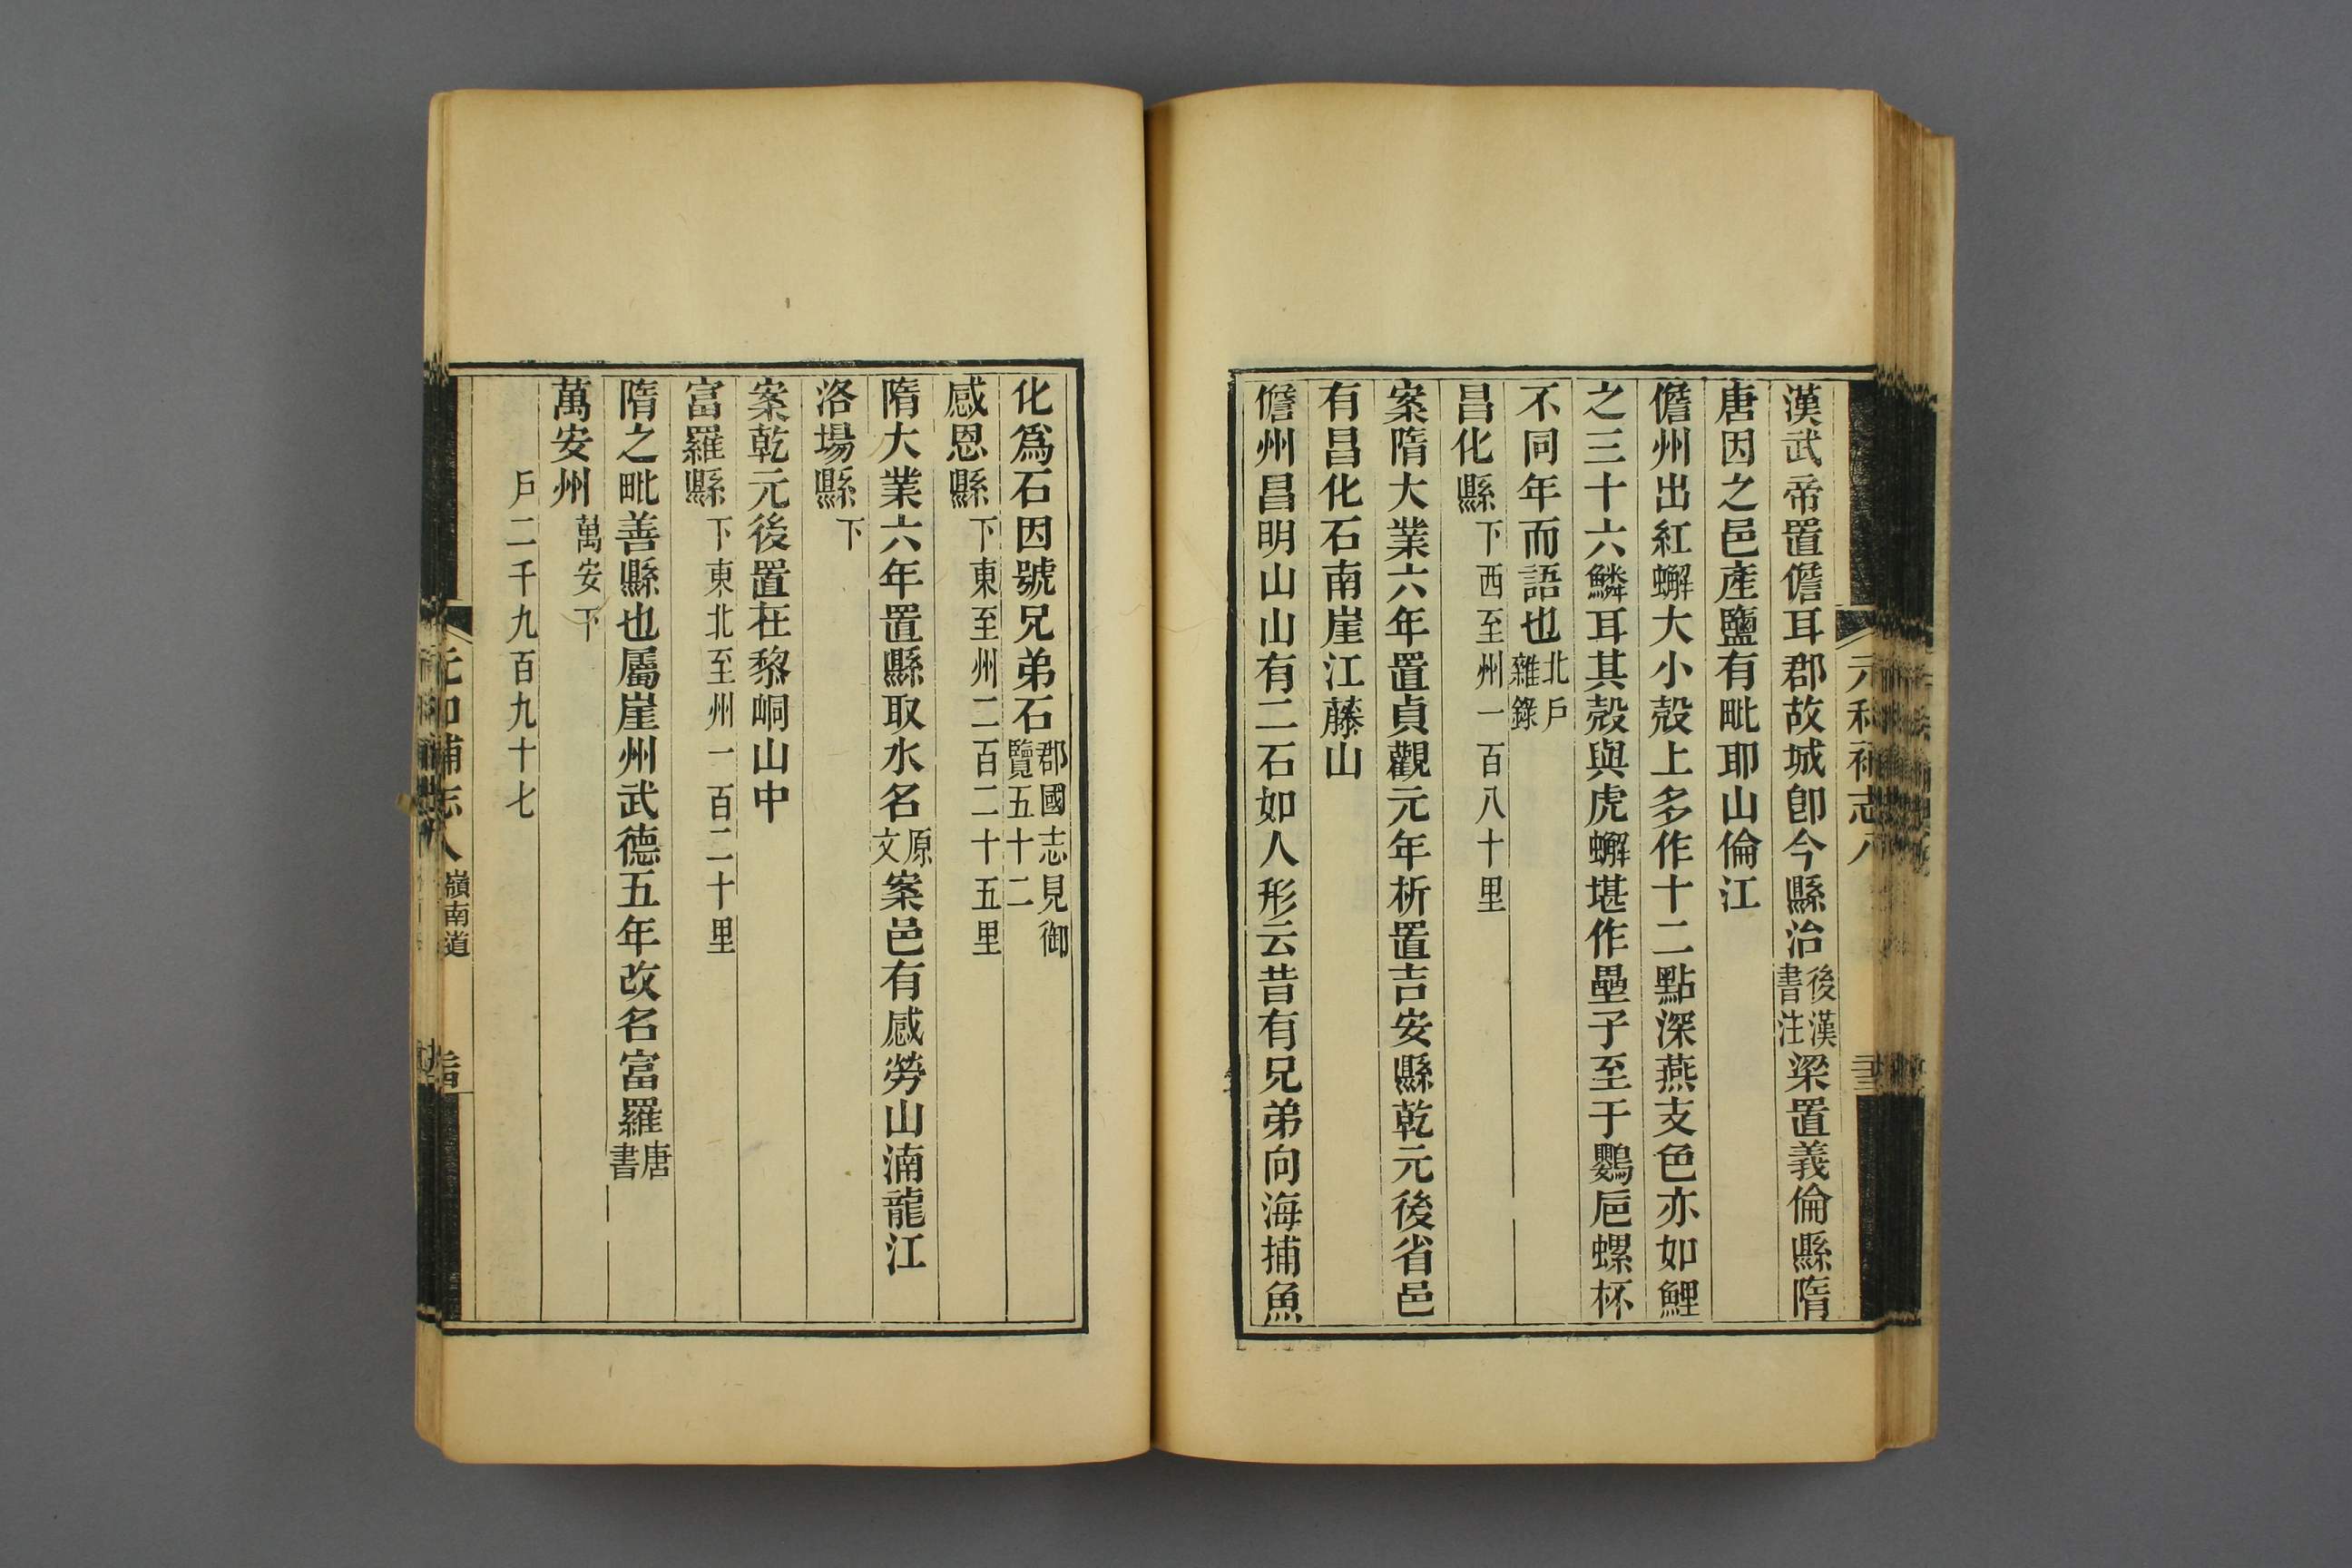 漢武帝置儋耳郡故城卽今縣治後漢書注梁置義倫縣隋
唐因之邑產鹽有毗耶山倫江
儋州出紅蠏大小殼上多作十二點深燕支色亦如鯉
之三十六鱗耳其殼與虎蠏堪作壘子至于鸚巵螺杯
不同年而語也北戶雜錄
昌化縣下西至州一百八十里
案隋大業六年置貞觀元年析置吉安縣乾元後省邑
有昌化石南崖江藤山
儋州昌明山山有二石如人形云昔有兄弟向海捕魚
化爲石因號兄弟石郡國志見御覽五十二
感恩縣下東至州二百二十五里
隋大業六年置縣取水名原文案邑有感勞山湳龍江
洛場縣下
案乾元後置在黎峒山中
富羅縣下東北至州一百二十里
隋之毗善縣也屬崖州武德五年改名富羅唐書
萬安州萬安下
戶二千九百九十七
嶺南道